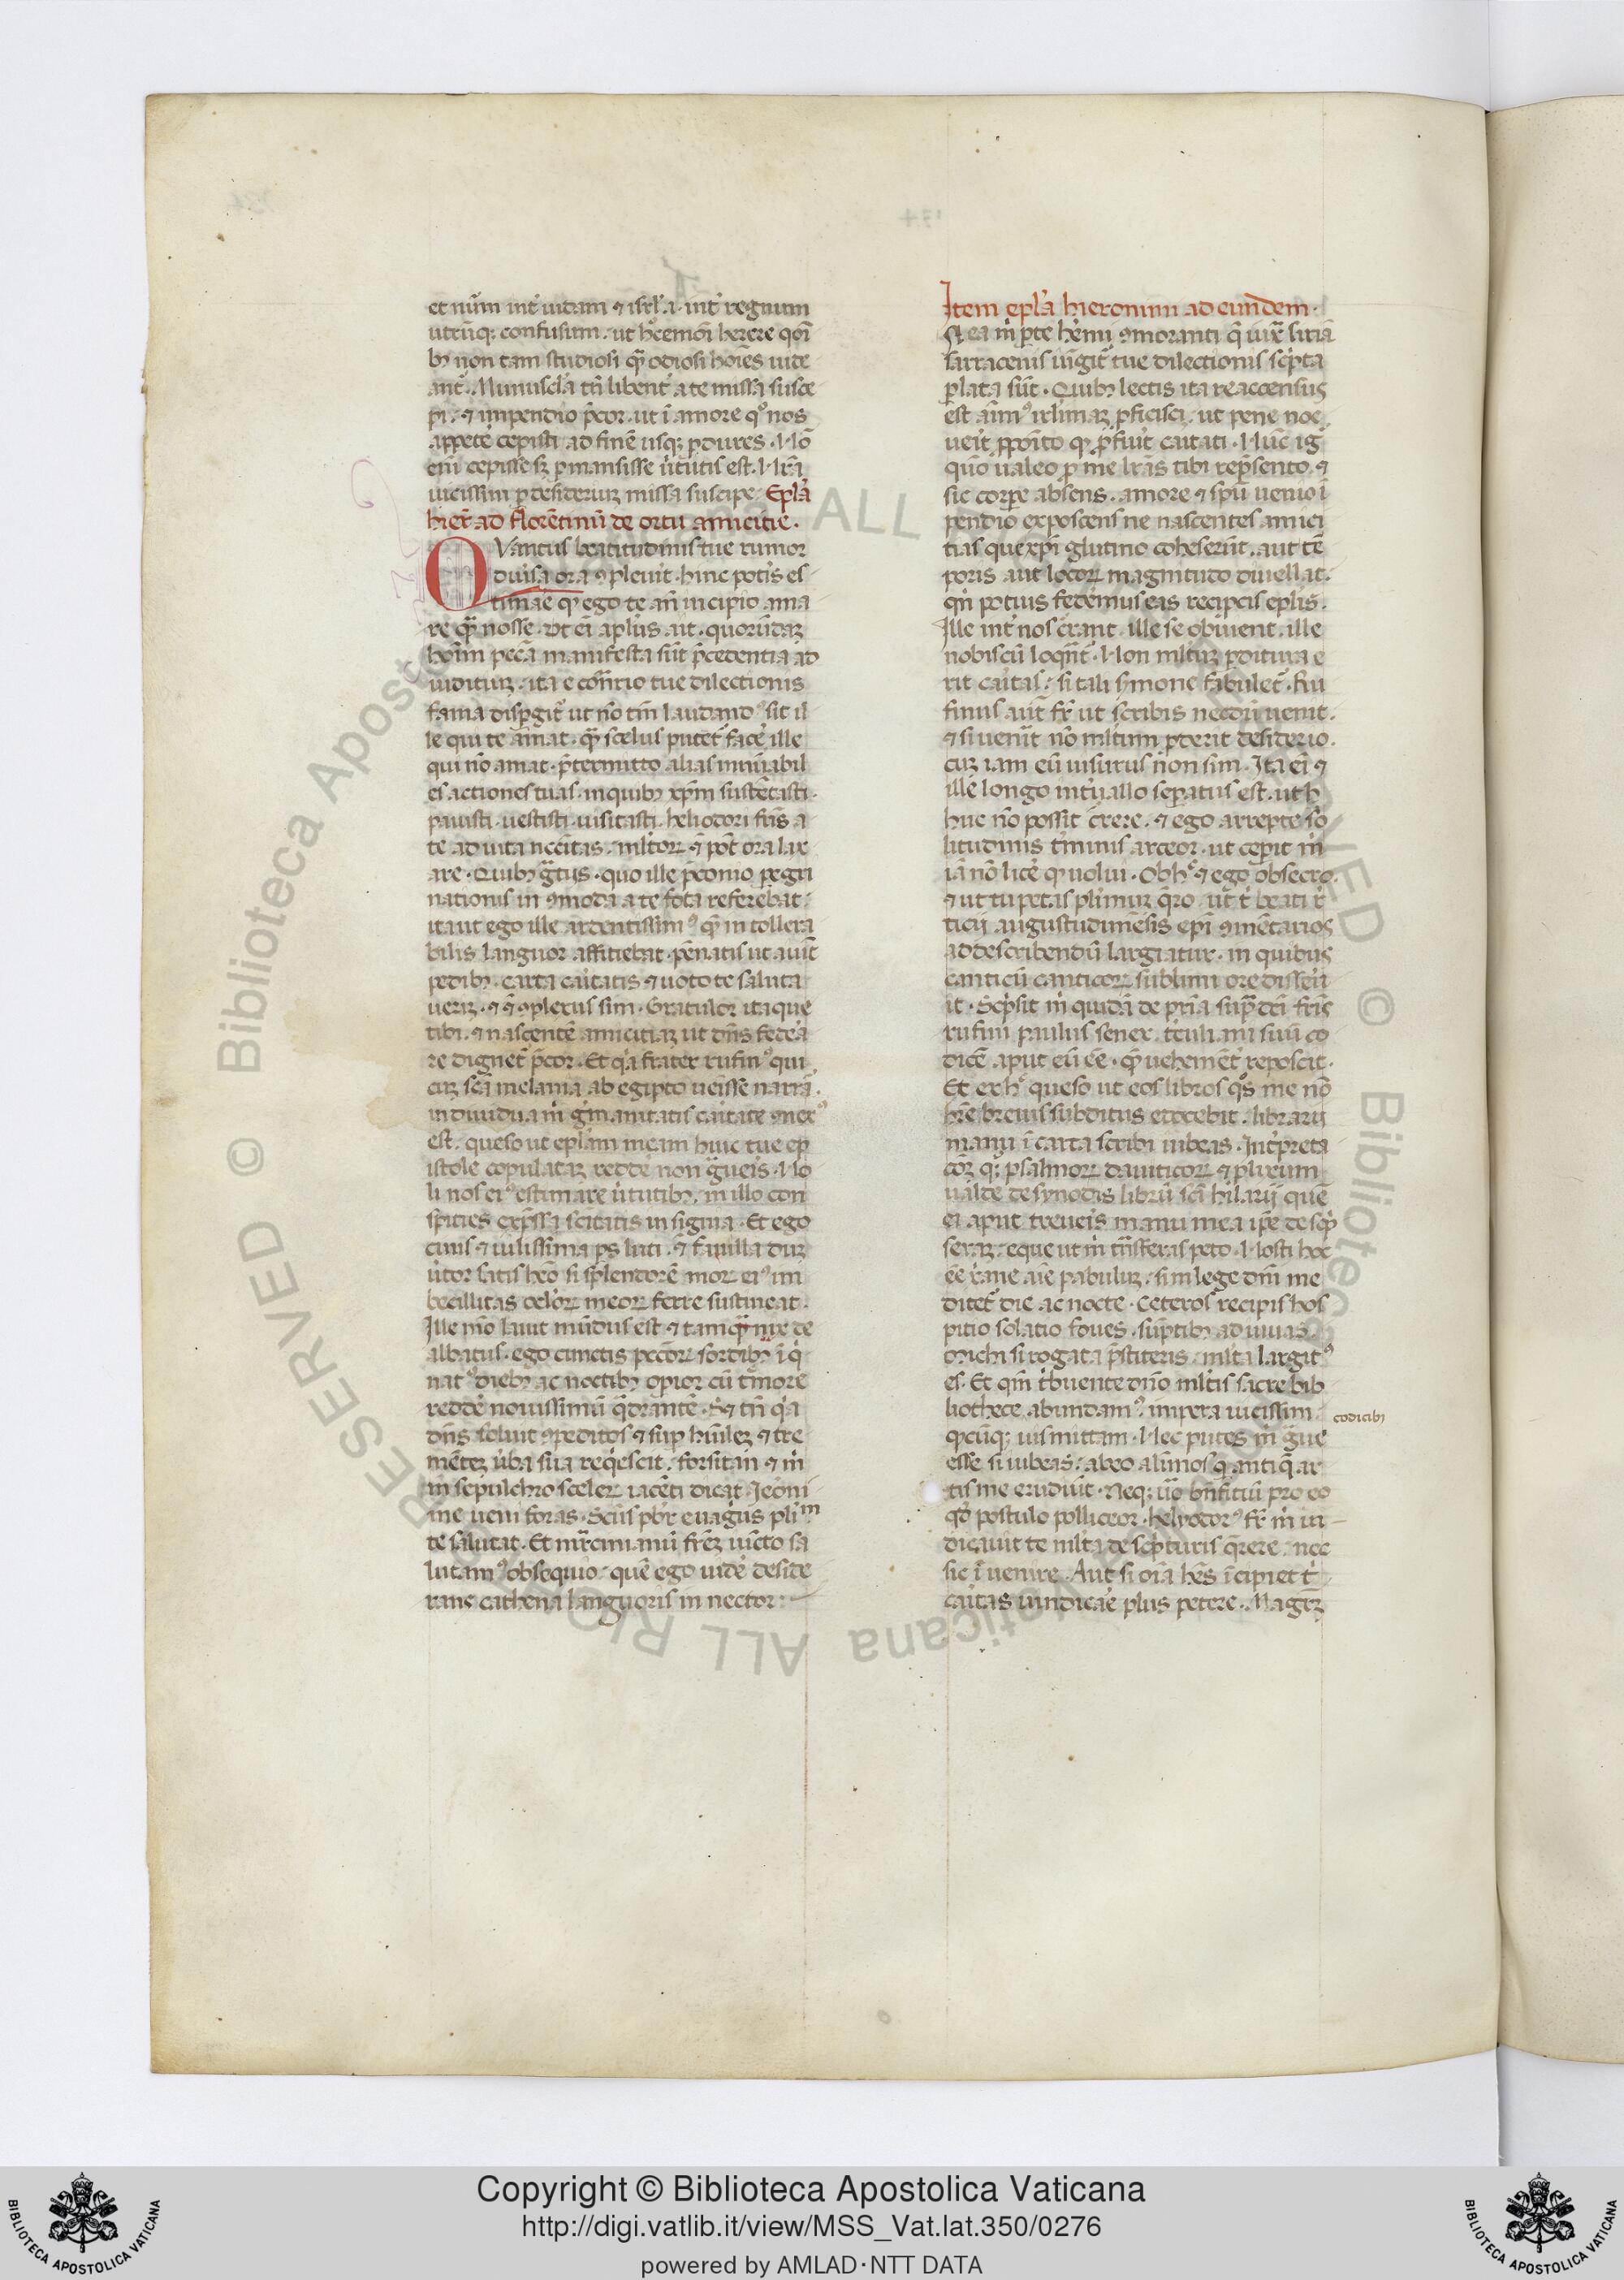 et nũm int̾ uitam ⁊ isrl̾a. int̾ regnum
utrũq; confusum. ut hc̾emõi herere qõi
bȝ non tam studiosi qͣ̃ odiosi hoĩes uide
ant̾. Munuscl̾a tñ libent̾ a te missa susce
pi. ⁊ impendio p̃cor. ut ĩ amore qͦ nos
appet̾e cepisti ad finẽ usqȝ ꝑdures. Nõ
enĩ cepisse sȝ ꝑmansisse ũtutis est. Nr̃a
uicissim ꝑ desideriuȝ missa suscipe. Epl̾a
hier̾ ad florẽtinũ de ortu amicitie.
QVantus beatitudinis tue rumor
diuisa ora ꝯpleuit. hinc pot̾is es
timar̾e qͥ ego te añ incipio ama
re qͣ̃ nosse. Vt eĩ apl̾us ait. quorũdaȝ
hoĩm pec̃a manifesta sũt p̃cedentia ad
iudiciuȝ. ita e cõtr̃rio tue dilectionis
fama disꝑgit̾ ut nõ tm̃ laudandꝰ sit il
le qui te amat. qͣ̃ scelus putet̾ fac̾e ille
qui nõ amat. p̃termitto alias innũabil
es actiones tuas. in quibȝ xp̃m sustẽtasti.
pauisti. uestisti. uisitasti. heliodori fr̃is a
te adiuta nec̃citas. ml̾toꝝ ⁊ pot̾ ora lax
are. Quibȝ gͣ̃tijs. quo ille p̃conio ꝑegri
nationis in ꝯmoda a te fota referebat.
ita ut ego ille ardentissimꝰ qͣ̃ in tollera
bilis languor affitiebat. pẽnatis ut aiũt
pedibȝ. carta car̾itatis ⁊ uoto te saluta
ueriȝ. ⁊ ꝯplexus sim. Gratulor itaque
tibi. ⁊ nascentẽ amicitiaȝ ut dñs feder̾a
re dignet̾ p̃cor. Et qͥa frater rufinꝰ qui
cuȝ scã melania ab egipto ueĩsse narra.
indiuidua m̾ gm̃anitatis car̾itate ꝯnexꝰ
est. queso ut epl̾am meam huic tue ep
istole copulataȝ redder̾e non gͣ̃ueris. No
li nos eiꝰ estimare ũtutibȝ. in illo con
spicies exp̃ssa scĩtatis in signia. Et ego
cinis ⁊ uilissima ps luti. ⁊ fauilla duȝ
ũtor satis hẽo si splendorẽ moꝝ eiꝰ im
becillitas oclõꝝ meoꝝ ferre sustineat.
Ille mõ lauit mũdus est ⁊ tamqͣ̃ nix de
albatus. ego cunctis pecc̃oꝝ sordibȝ ĩ qͥ
natꝰ diebȝ ac noctibȝ opior cũ tͥmore
redder̾e nouissimũ q̃drantẽ. Sȝ tñ qͥa
dñs soluit ꝯpeditos ⁊ suꝑ hũileȝ ⁊ tre
mẽteȝ ũba sua reqͥescit. forsitan ⁊ m̾
in sepulchro sceleꝝ iacẽti dicat Jeoni
me ueni foras. Scũs pb̾r euagrius pli m
te salutat. Et mr̃cinianũ fr̃eȝ uĩcto sa
lutamꝰ obsequio. quẽ ego uider̾e deside
rans cathena languoris in nector.
Item epl̾a hieronimi ad eundem.
N ea m̾ ꝑte her̾mi ꝯmoranti q̃ iux̃ siriã
sarracenis iũgit̾ tue dilectionis sc̾pta
ꝑlata sũt. Quibȝ lectis ita reaccensus
est aĩmꝰ irl̾imaȝ ꝓficisci. ut pene noc
uer̾it ꝓpõito qͥ ꝓfuit car̾itati. Nũc igͥ
quõ ualeo ꝑ me lr̃as tibi rep̃sento. ⁊
sic corp̾e absens. amore ⁊ sp̃u uenio ĩ
pendio exposcens ne nascentes amici
tias que xp̃i glutino coheserũt. aut tẽ
poris aut locoꝝ magnitudo diuellat.
qñ potius feder̾emus eas recip̾cis epl̾is.
Ille int̾ nos c̃rant. ille se obuient. ille
nobiscũ loqñt̾. Non ml̾tuȝ ꝑditura e
rit car̾itas. si tali s̾mone fabulet̾. Ru
finus aut̃ fr̃ ut scribis necdũ uenit.
⁊ si uenit nõ ml̾tum ꝓderit desiderio.
cuȝ iam eũ uisurus non sim. Ita eĩ ⁊
ille longo int̾uallo seꝑatus est. ut h
huc nõ possit c̃rere. ⁊ ego arrepte so
litudinis t̾minis arceor. ut cep̾it m̾
iã nõ licer̾e qͥ uolui. Ob hͦc ⁊ ego obsecro.
⁊ ut tu petas plimuȝ q̃ro. ut t̾ beati r̾
ticij augustudunẽsis epĩ ꝯmẽtarios
ad describendũ largiatur. in quibus
canticũ canticoꝝ sublimi ore disseru
it. Sc̾psit m̾ quidã de pr̃ia supͣdc̃i fr̃is
rufini paulus senex. tͥtuli. mi suũ co
dicẽ aput eũ eẽ. qͥ uehemẽt̾ reposcit.
Et ex hͦc queso ut eos libros qͦs me nõ
hr̃e breuis subditus edocebit. librarij
manu ĩ carta scribi iubeas. Int̾preta
cõȝ qͦqȝ psalmoꝝ dauiticoꝝ ⁊ plixum
ualde de synodis librũ scĩ hilarij quẽ
ei aput treueris manu mea ip̃e descͥp
seraȝ. eque ut m̾ tñsferas peto. Nosti hoc
eẽ xͥane aĩe pabuluȝ. si in lege dñi me
ditet̾ die ac nocte. Ceteros recipis hos
pitio solatio foues. sũptibȝ adiuuas.
michi si rogata p̃stiteris. ml̾ta largitꝰ
es. Et qm̃ t̾buente dño ml̾tis sacre bib
liothece abundamꝰ. impera uicissim. codicibȝ
qͥcũqȝ uis mittam. Nec putes m̾ gͣue
esse si iubeas. abeo alũnos qͥ antiq̃ar
tis me erudiũt. Neqȝ ũo bñfitiũ pro eo
qd̾ postulo polliceor. helyodorꝰ fr̃ m̾ in
dicauit te ml̾ta de sc̾pturis q̃rere. nec
sic ĩuenire. Aut si oĩa hẽs ĩcipiet t̾
car̾itas uindicar̾e plus petere. Magr̾ȝ
Copyright © Biblioteca Apostolica Vaticana
http://digi.vatlib.it/view/MSS_Vat.lat.350/0276
powered by AMLAD·NTT DATA